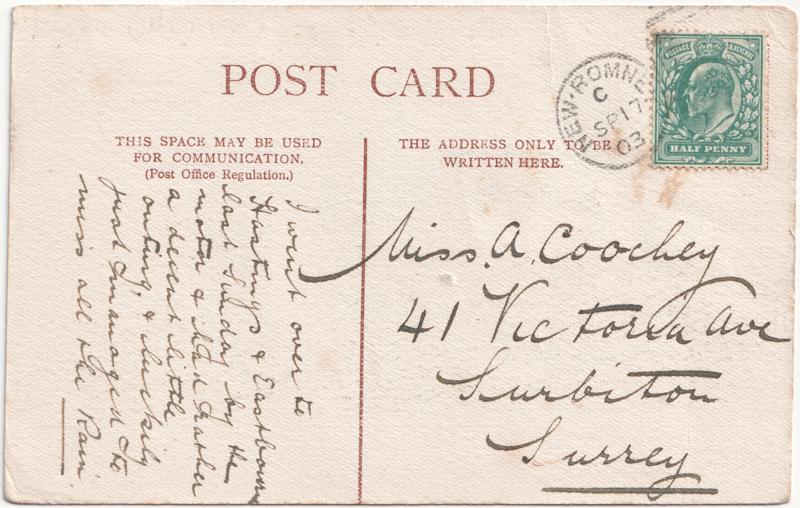 POST CARD
THIS SPACE MAY BE USED
FOR COMMUNICATION.
(Post Office Regulation.)
I went over to
Hastings & Eastbourne
last Sunday by the
motor & had rather
a decent little
outing, & luckily
just managed to
miss all the Rain
THE ADDRESS ONLY TO BE
WRITTEN HERE.
NEW·ROMNE
C
SP 17
03
POSTAGE & REVENUE
HALF PENNY
Miss. A. Coochey
41 Victoria Ave
Surbiton
Surrey